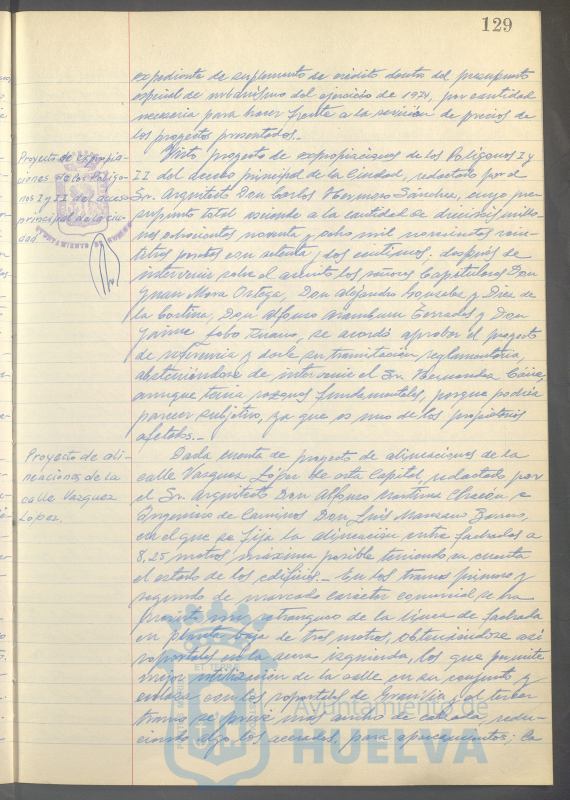 129
expediente de suplemento de crédito dentro del presupuesto
especial de urbanismo del ejercicio de 1971, por cantidad
necesaria para hacer frente a la revisión de precios de
los proyectos presentados.-
Proyecto de expropia-
ciones de los Polígo-
nos I y II del acceso
principal de la ciu-
dad.
Visto proyecto de expropiaciones de los Polígonos I y
II del acceso principal de la Ciudad, redactado por el
Sr. Arquitecto Don Carlos Hermoso Sánchez, cuyo pre-
supuesto total asciende a la cantidad de dieciseis millo-
nes ochocientas noventa y ocho mil novecientas vein-
titres pesetas con setenta y dos centimos; después de
intervenir sobre el asunto los señores Capitulares Don
Juan Mora Ortega, Don Alejandro González y Diez de
la Cortina, Don Alfonso Aramburu Terrades y Don
Jaime Lobo, se acordó aprobar el proyecto
de referencia y darle su tramitación reglamentaria,
absteniéndose de intervenir el Sr. Hernandez
aunque tenía razones fundamentales, porque podría
parecer subjetivo, ya que es uno de los propietarios
afectados.-
Proyecto de ali-
neaciones de la
calle Vazquez
López.
Dada cuenta de proyecto de alineaciones de la
calle Vazquez López de esta Capital, redactado por
el Sr. Arquitecto Don Alfonso Martinez Chacón e
Ingeniero de Caminos Don Luis Manzano
en el que se fija la alineación entre fachadas a
8,25 metros máxima posible teniendo en cuenta
el estado de los edificios.- En los tramos primero y
segundo de marcado carácter comercial se ha
previsto un retranqueo de la linea de fachada
en planta baja de tres metros, obteniéndose asi
soportales en la acera izquierda, los que permite
mejor utilización de la calle en su conjunto y
enlaza con los soportales de Gran Via y al tercer
tramo se prevé mas ancho de calzada, redu-
ciendo algo los acerados, para aparcamientos; la
Ayuntamiento de
HUELVA